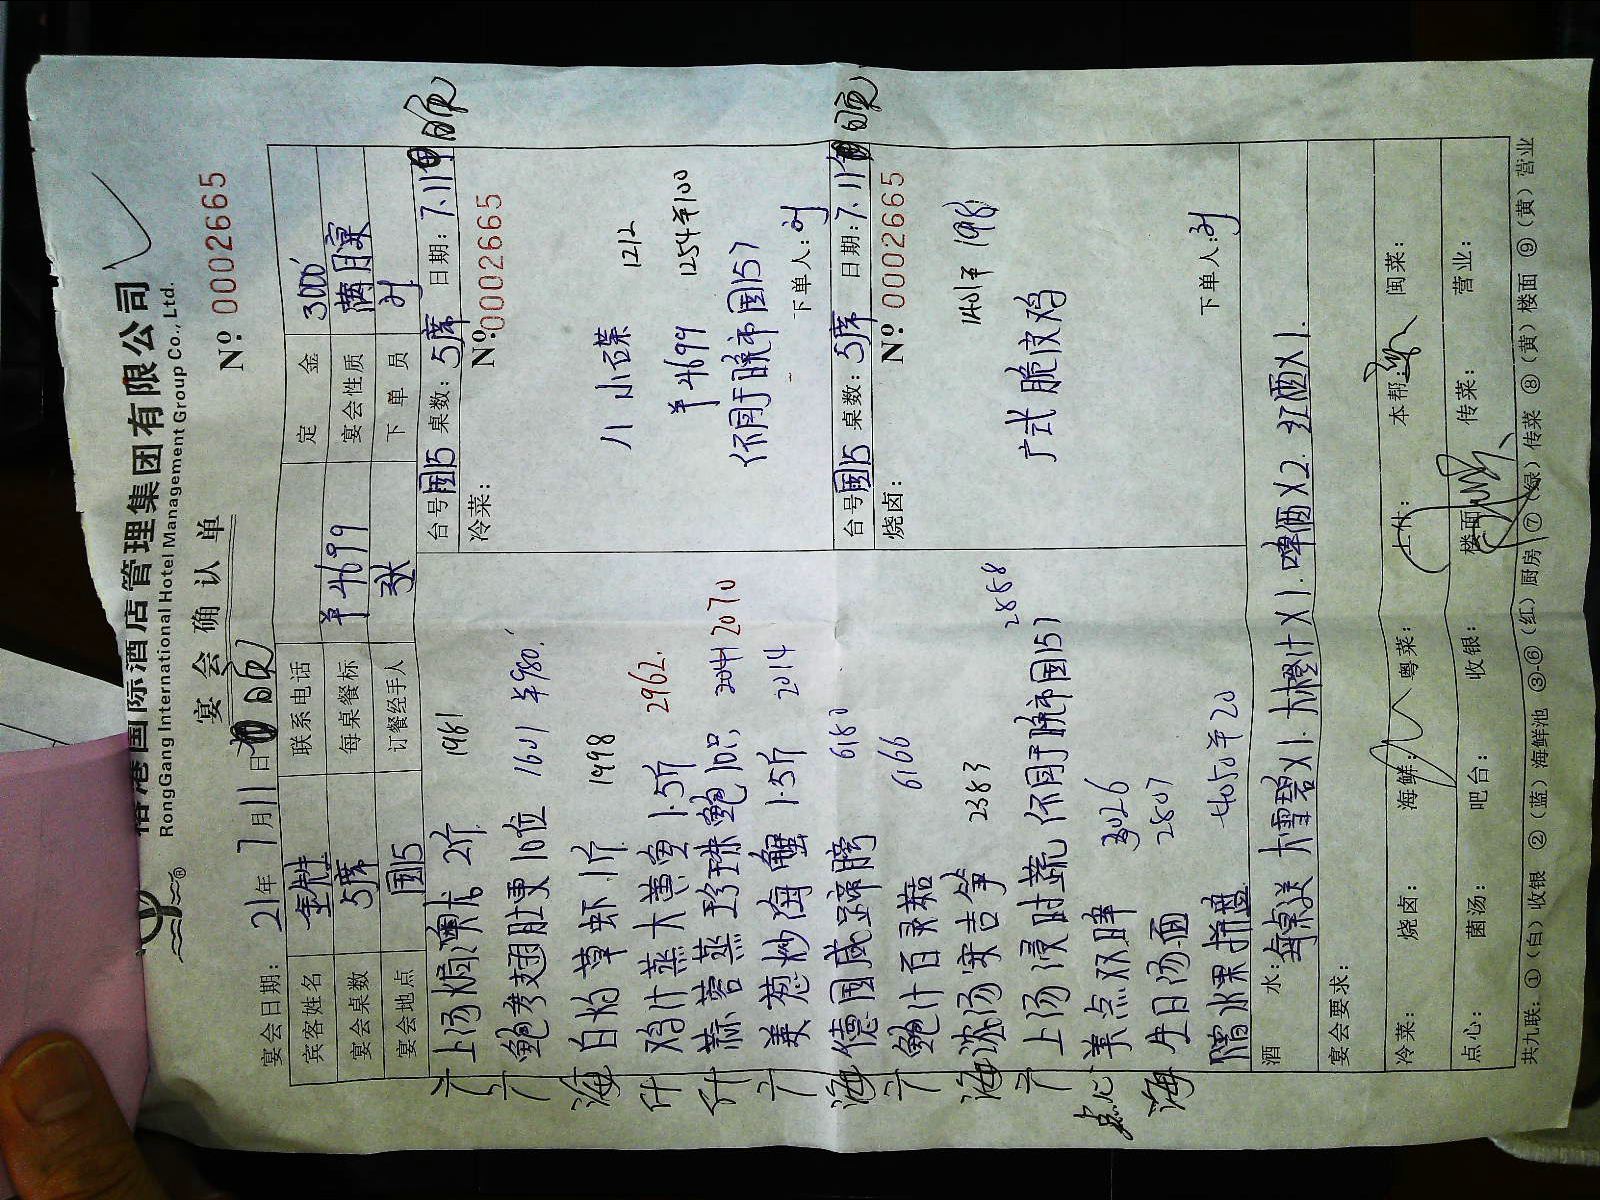 国际酒店管理集团有限公司
RongGang International Hotel Management Group Co., Ltd.
宴会确认单
Nº 0002665
宴会日期: 21年 7月11日
宾客姓名 联系电话 定金 3000
宴会桌数 5席 每桌餐标 ¥4699 宴会性质 满月宴
宴会地点 国15 订餐经手人 张 下单员
台号 国15 桌数: 5席 日期: 7.11
冷菜:
Nº 0002665
八小碟 1212
1254半100
¥4699
不同于晚市国157
下单人:
台号 国15 桌数: 5席 日期: 7.11
烧卤:
Nº 0002665
1401半198
广式脆皮鸡
下单人:
广 上汤焗澳龙 2斤 1981
广 鲍参翅肚更10位 1601 半980
海 白灼草虾 1斤 1998
仟 鸡汁蒸大黄鱼 1.5斤 2962
仟 蒜蓉蒸珍珠鲍10只 2041 2070
广 姜葱炒海蟹 1.5斤 2014
海 德国咸蹄膀 6180
广 鲍汁百灵菇 6166
海 浓汤宋吉笋 2383
广 上汤浸时蔬 不同于晚市国157 2888
点心 美点双晖 3026
海 生日汤面 2807
精水果拼盘 4050半20
酒水: 每桌送 大雪碧X1. 大橙汁X1. 啤酒X2. 红酒X1.
宴会要求:
冷菜: 烧卤: 海鲜: 粤菜: 上什: 本帮: 闽菜:
点心: 菌汤: 吧台: 收银: 楼面: 传菜: 营业:
共九联: ①(白)收银 ②(蓝)海鲜池 ③-⑥(红)厨房 ⑦(绿)传菜 ⑧(黄)楼面 ⑨(黄)营业